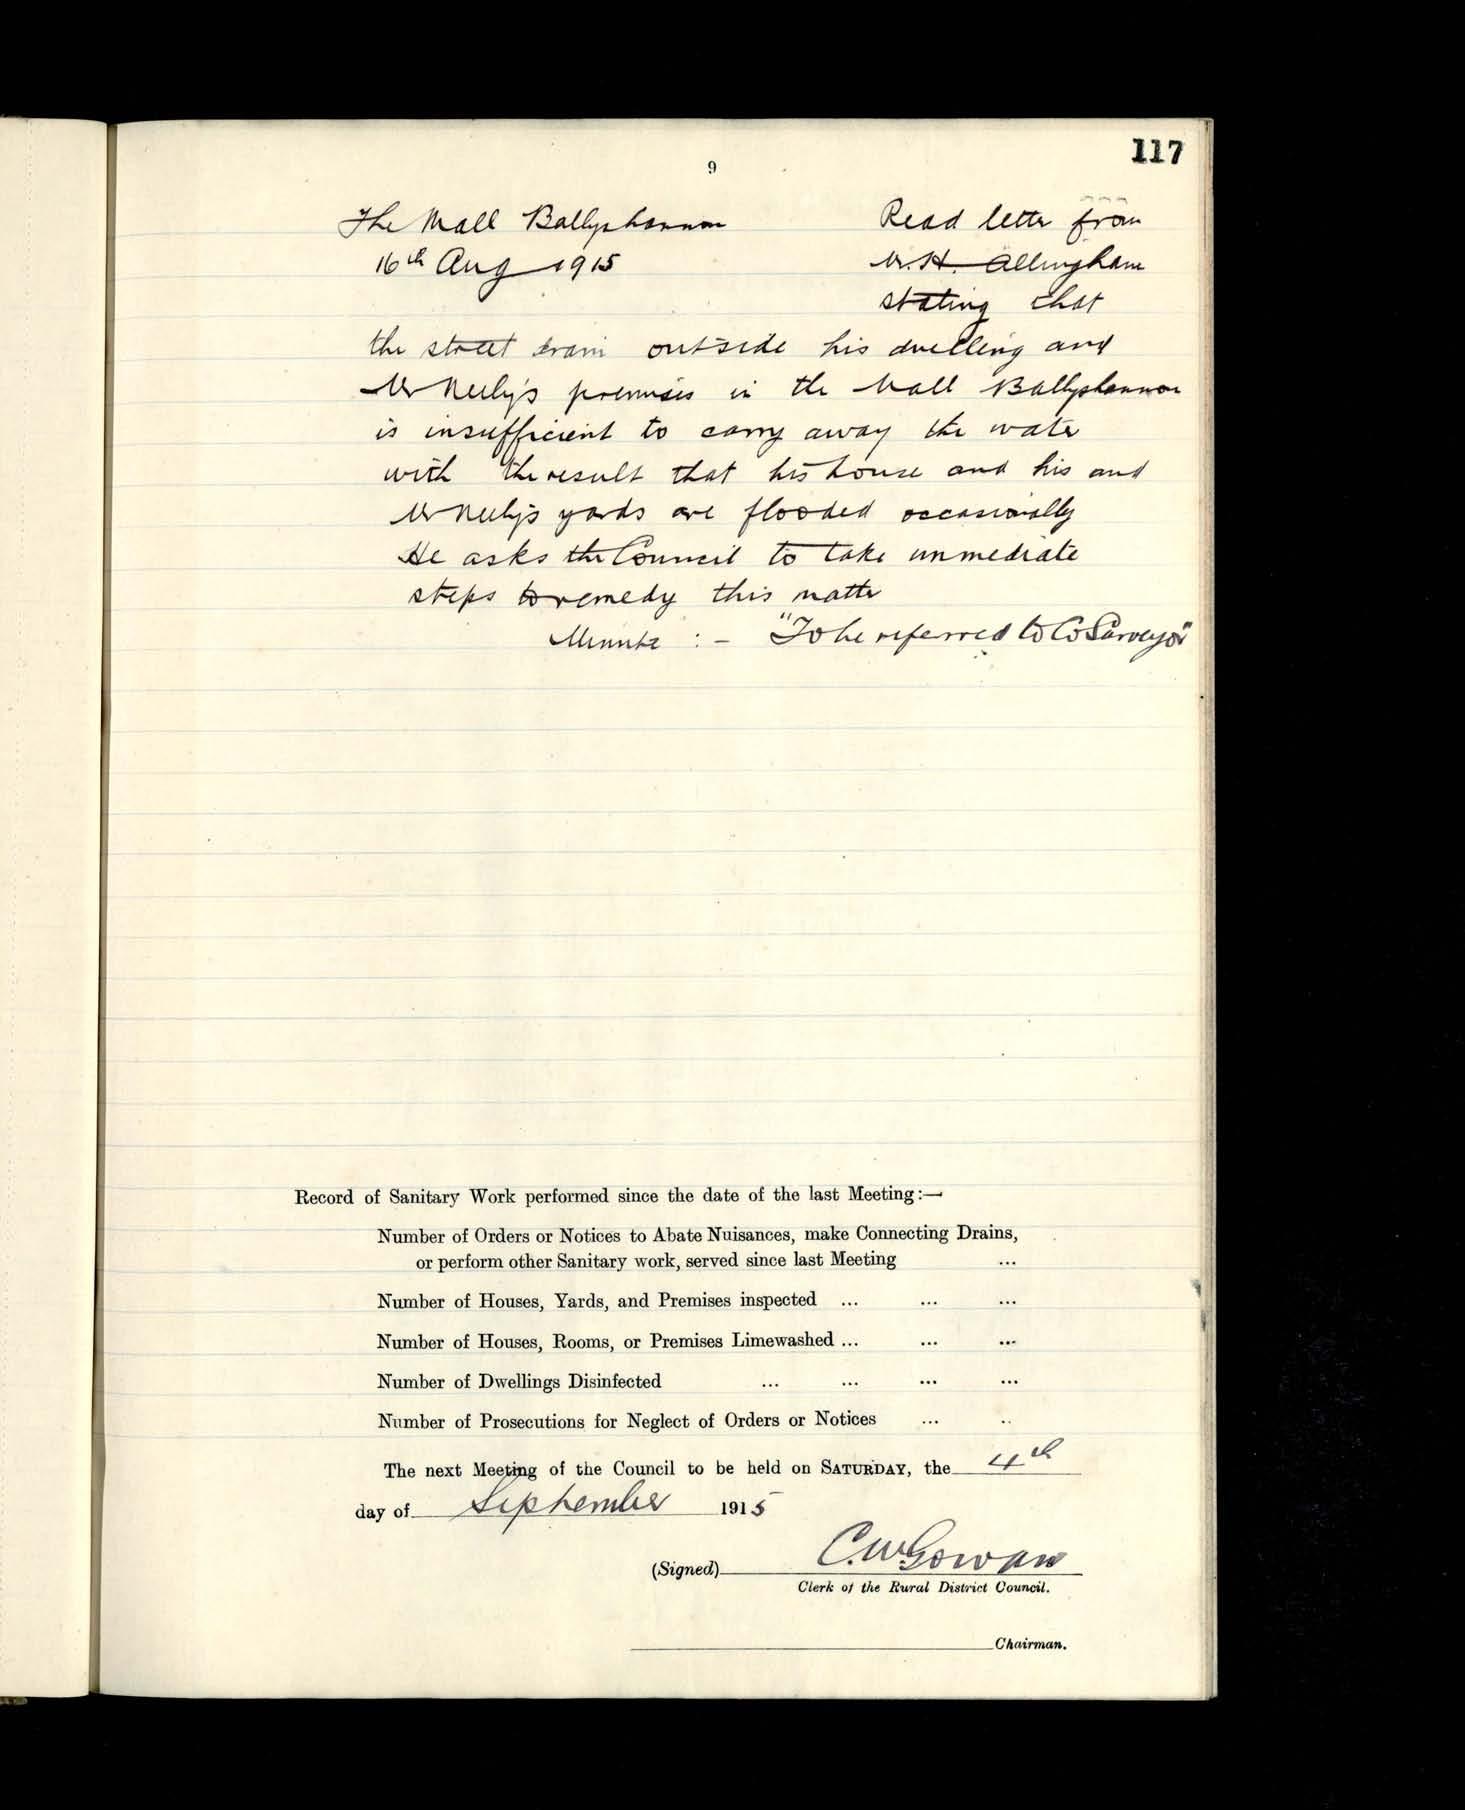 117
9
The Mall Ballyshannon
16th Aug 1915
Read letter from
Mr. H. Allingham
stating that
the street drain outside his dwelling and
Mr Neely's premises in the Mall Ballyshannon
is insufficient to carry away the water
with the result that his house and his and
Mr Neely's yards are flooded occasionally
He asks the Council to take immediate
steps to remedy this matter
Minute :- "To be referred to Co Surveyor"
Record of Sanitary Work performed since the date of the last Meeting:—
Number of Orders or Notices to Abate Nuisances, make Connecting Drains,
or perform other Sanitary work, served since last Meeting ...
Number of Houses, Yards, and Premises inspected ... ... ...
Number of Houses, Rooms, or Premises Limewashed ... ... ...
Number of Dwellings Disinfected ... ... ... ...
Number of Prosecutions for Neglect of Orders or Notices ... ..
The next Meeting of the Council to be held on SATURDAY, the 4th
day of September 1915
(Signed) C. McGowan
Clerk of the Rural District Council.
Chairman.